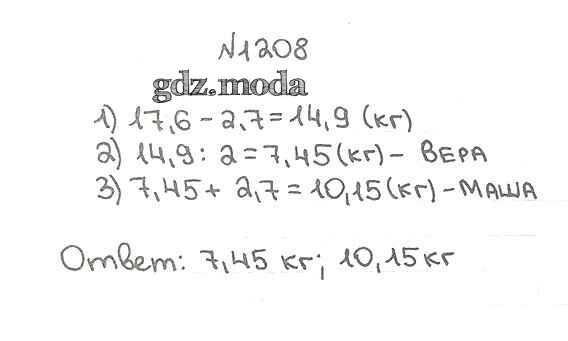 №1208
gdz.moda
1) 17,6 - 2,7 = 14,9 (кг)
2) 14,9 : 2 = 7,45 (кг) - ВЕРА
3) 7,45 + 2,7 = 10,15 (кг) - МАША
Ответ: 7,45 кг; 10,15 кг